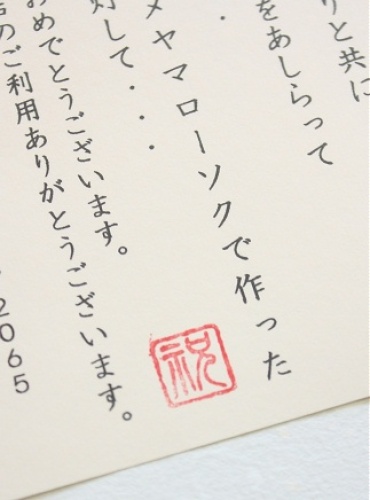 りと共に
をあしらって
・
メヤマローソクで作った
灯して・・・
おめでとうございます。
のご利用ありがとうございます。
2065
祝